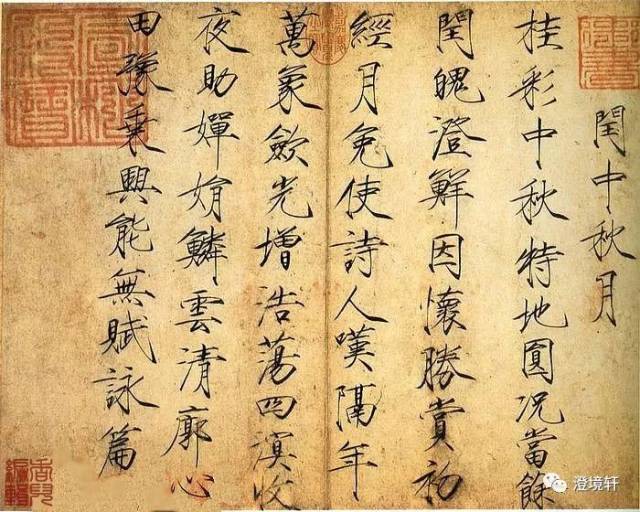 閏中秋月
桂彩中秋特地圓況當餘
閏魄澄鮮因懷勝賞初
經月免使詩人嘆隔年
萬象歛光增浩蕩四溟收
夜助嬋娟鱗雲清廓心
田豫乘興能無賦詠篇
澄境轩